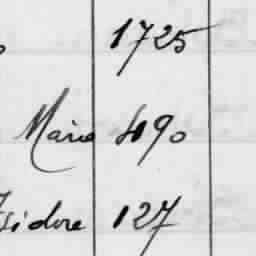 1725
Marie 490
Isidore 127